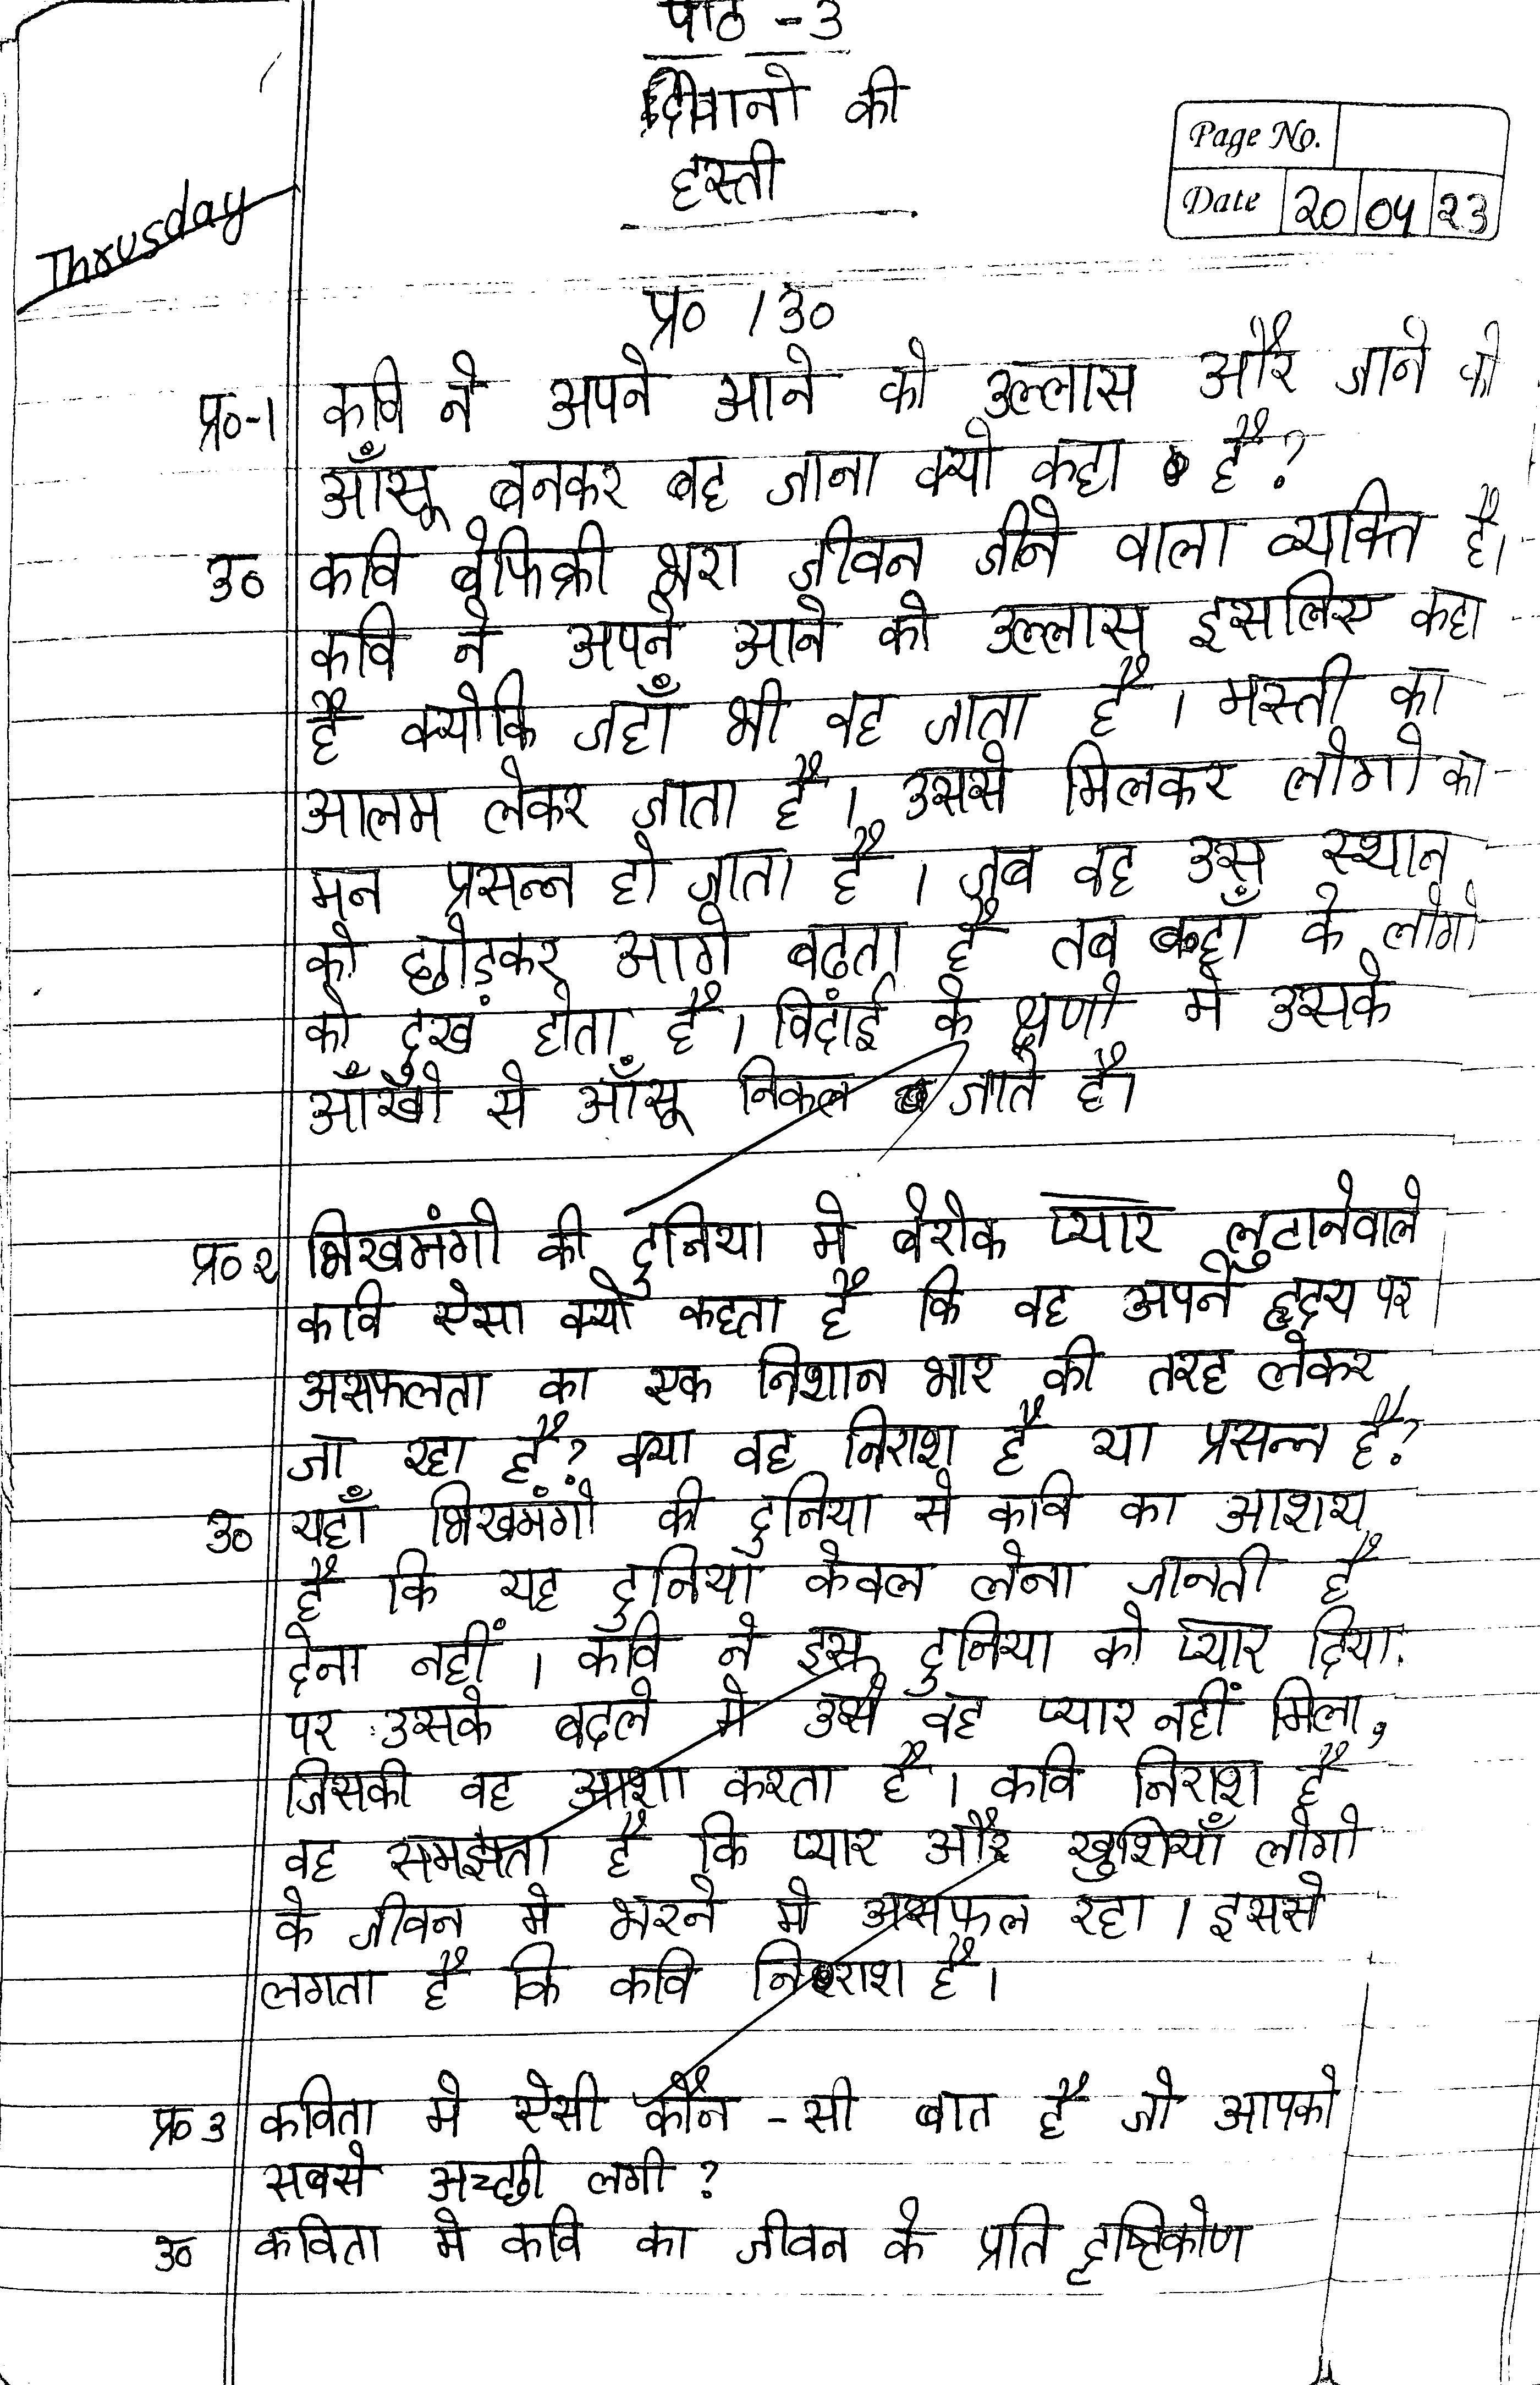 पाठ -3
दिवानो की
हस्ती
Page No.
Date 20 04 23
Thrusday
प्र० / उ०
प्र०-1 कवि ने अपने आने को उल्लास और जाने को
आँसू बनकर बह जाना क्यो कहा है?
उ० कवि बेफिक्री भरा जीवन जीने वाला व्यक्ति है।
कवि ने अपने आने को उल्लास इसलिए कहा
है क्योकि जहाँ भी वह जाता है । मस्ती का
आलम लेकर जाता है । उससे मिलकर लोगो का
मन प्रसन्न हो जाता है । जब वह उस स्थान
को छोड़कर आगे बढता है तब वहाँ के लोगो
को दुखं होता है । विदांई के क्षणो मे उसके
आँखो से आँसू निकल जाते है।
प्र० २ भिखमंगो की दुनिया मे बेरोक प्यार लुटानेवाले
कवि ऐसा क्यो कहता है कि वह अपने हृदय पर
असफलता का एक निशान भार की तरह लेकर
जा रहा है? क्या वह निराश है या प्रसन्न है?
उ० यहाँ भिखमंगो की दुनिया से कवि का आशय
है कि यह दुनिया केवल लेना जानती है
देना नहीं । कवि ने इस दुनिया को प्यार दिया
पर उसके बदले मे उसे वह प्यार नहीं मिला,
जिसकी वह आशा करता है । कवि निराश है
वह समझता है कि प्यार और खुशियाँ लोगो
के जीवन मे भरने मे असफल रहा । इससे
लगता है कि कवि निराश है ।
प्र० 3 कविता मे ऐसी कौन - सी बात है जो आपको
सबसे अच्छी लगी ?
उ० कविता मे कवि का जीवन के प्रति दृष्टिकोण